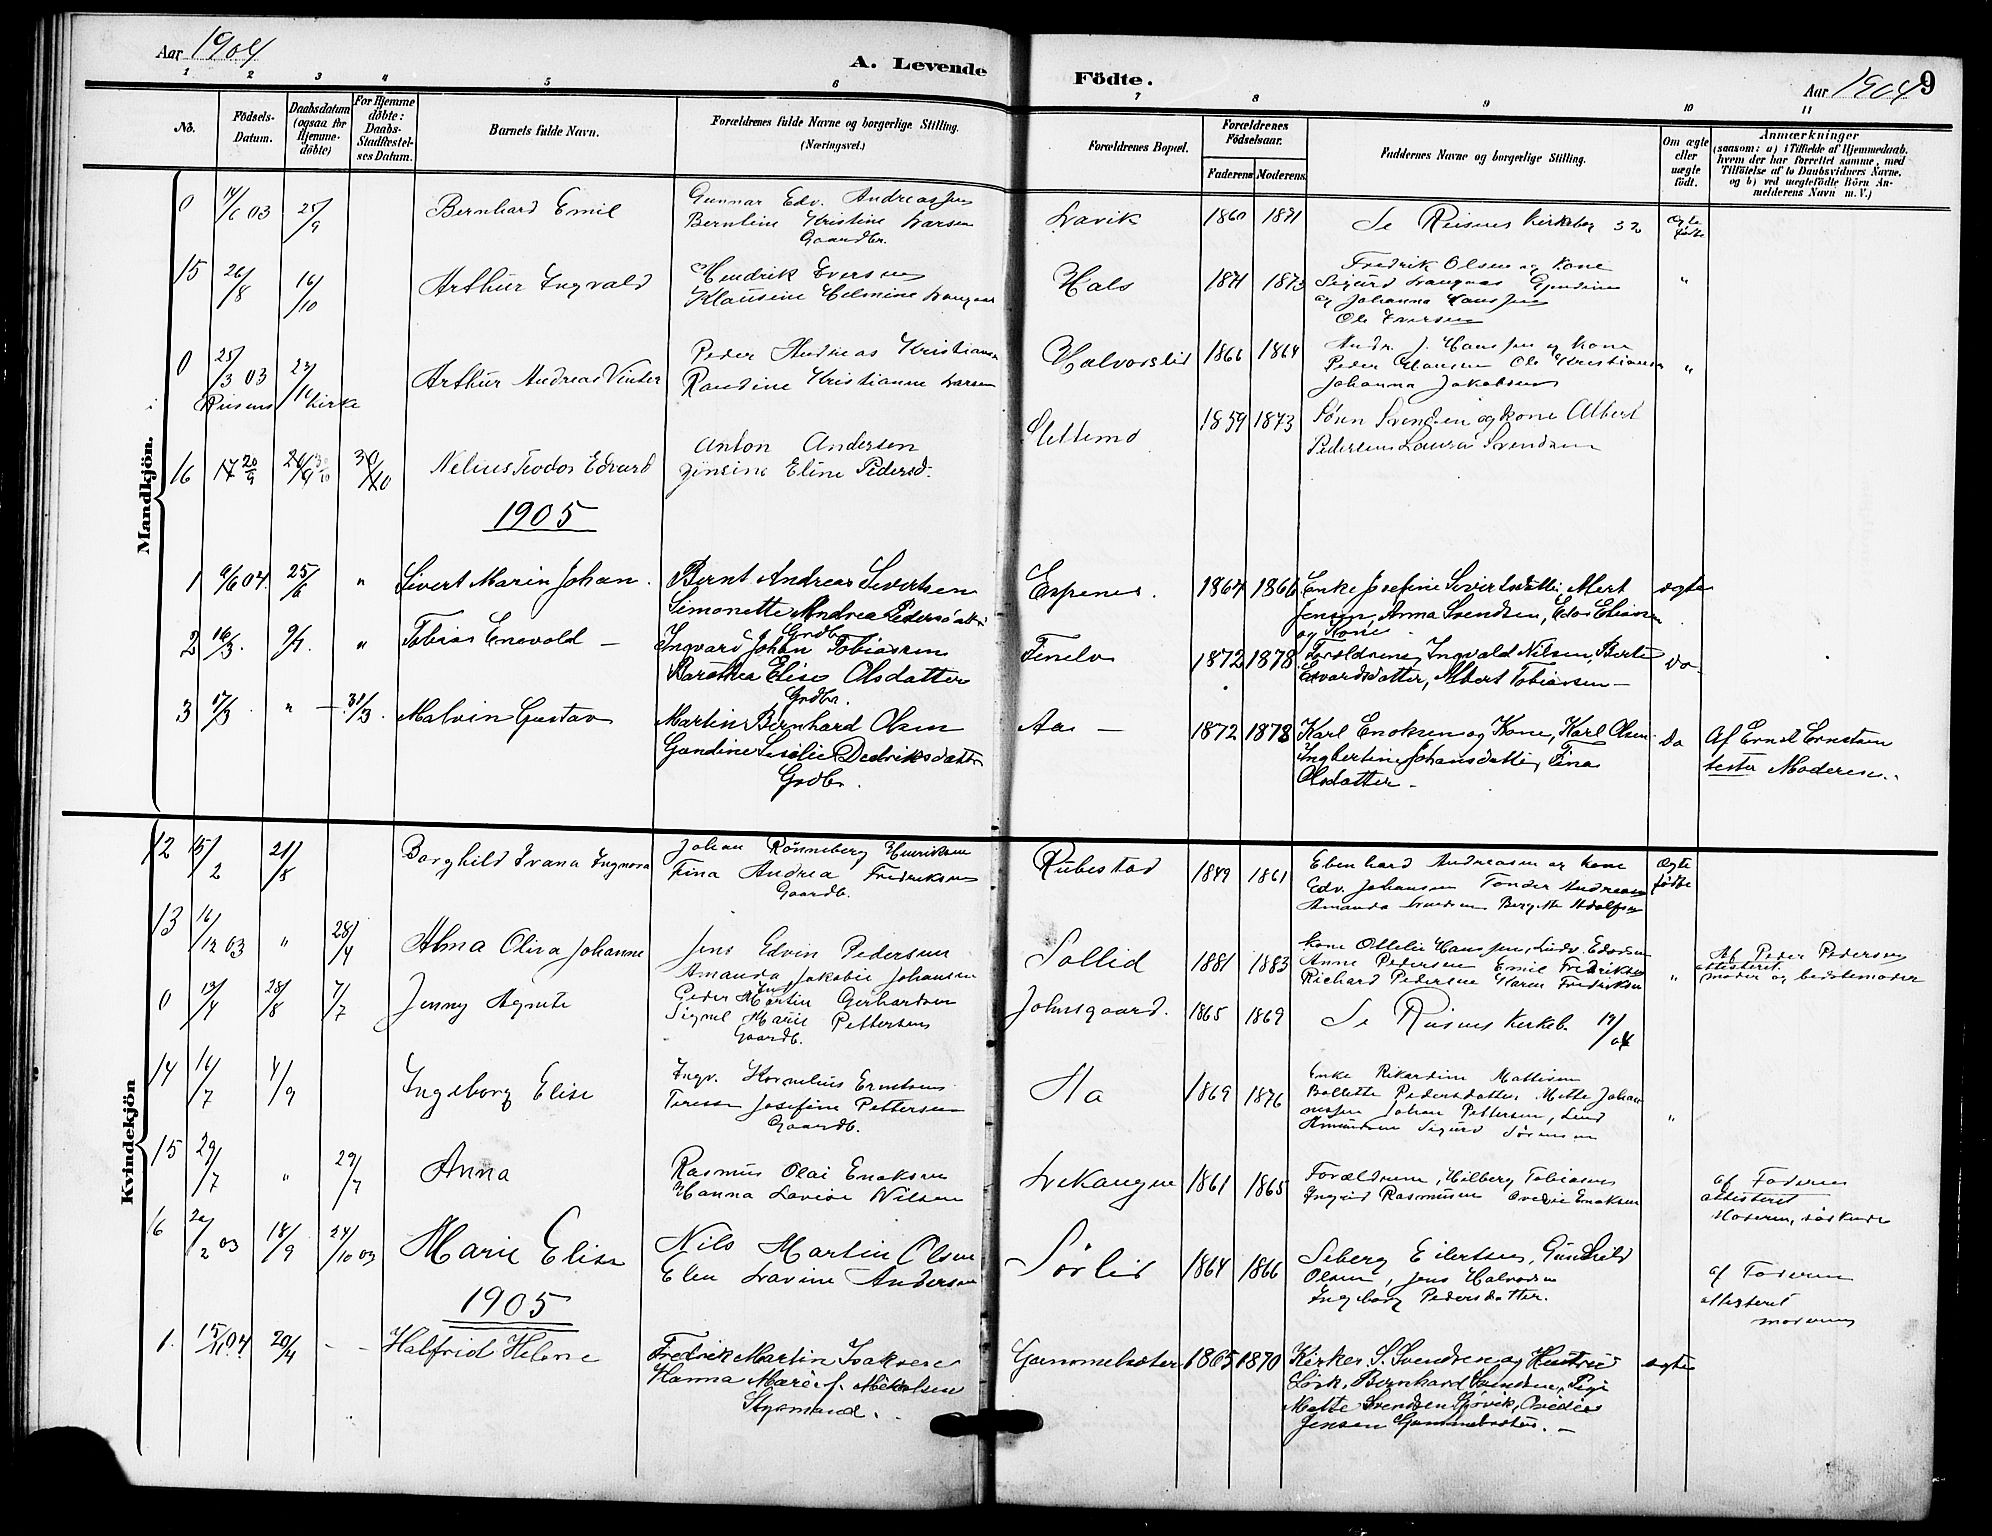 Aar 1904
A. Levende
Födte.
Aar 1904
9
1 2 3 4 5 6 7 8 9 10 11
No.
Födsels-
Datum.
Daabsdatum
(ogsaa for
Hjemme-
döbte)
For Hjemme
döbte:
Daabs-
Stadfestel-
ses Datum.
Barnets fulde Navn.
Forældrenes fulde Navne og borgerlige Stilling.
(Næringsvei.)
Forældrenes Bopæl.
Forældrenes
Födselsaar.
Faderens Moderens
Faddernes Navne og borgerlige Stilling.
Om ægte
eller
uægte
födt.
Anmærkninger
(saasom: a) i Tilfælde af Hjemmedaab.
hvem der har forrettet samme, med
Tilföielse af to Daabsvidners Navne.
og b) ved uægtefödte Börn An-
melderens Navn m. V.)
Mandkjön.
0 03 25/9 Bernhard Emil
Gunnar Edv. Andreassen
Berntine Kristine Larsen
Gaardbr.
Lavik 1860 1871
Se Risens Kirkebog 32
ægte
födte
15 26/8 16/10 Arthur Ingvald
Hendrik Eversen
Klausine Helmine
Hals 1871 1873
Fredrik Olsen og Kone
Sigurd
og Johanna Hanssen
Ole Eversen
"
0 25/3 03 Arthur Andreas Vinter
Risens Kirke
Peder Andreas Kristiansen
Randine Kristianne Larsen
Halvorslid 1866 1864
Andr. J. Hanssen og Kone
Peder Hansen Ole Kristiansen
Johanna Jakobsen
"
16 20/9 30/10 Nelius Teodor Edvard
Anton Andersen
Jensine Eline Pedersd.
1859 1873
Sören Svendsen og Kone Albert
Pedersen Laura Svendsen
1905
1 6/6 04. 25/6 " Sivert Marin Johan.
Bernt Andreas Sivertsen
Simonette Andrea Pedersdatter
Grdb.
Espenes. 1864 1866
Enke Josefine Sivertsdatter, Albert
Jensen, Anna Svendsen, Edv. Eliasen
og Kone.
ægte
2 16/3. 9/7. " Tobias Enevold —
Ingvard Johan Tobiassen
Barothea Elise Olsdatter
Grdbr.
1872 1878
Forældrene, Ingvald Nilsen, Berte
Edvardsdatter, Albert Tobiassen —
Do.
3 17/3 " 31/3. Malvin Gustav
Martin Bernhard Olsen
Gundine Seselie Dedriksdatter
Grdbr.
Aa — 1872 1878
Karl Enoksen og Kone, Karl Olsen
Ingbertine Johansdatter, Tina
Olsdatter —
Do
Af Ernst Ernstsen
tester Moderen.
Kvindekjön
12 15/2 21/8 Borghild Ivana Ingvora
Johan Rönneberg Henriksen
Tina Andrea Fredriksen
Gaardb.
Rubestad 1849 1861
Ebenhard Andreasen og Kone
Edv. Johansen Tonder Andreasen
Amanda Bergitte Adolfsen
Ægte
födte
13 16/12 03 " 28/4 Alma Oliva Johanne
Jens Edvin Pedersen
Amanda Jakobie Johansen
Sollid 1881 1883
Kone Ottelie Hanssen, Ludv. Edvardsen
Anne Pedersen Emil Fredriksen
Richard Pedersen Karen Fredriksen
"
Af Peder Pedersen
attesteret
moder og bedstemoder
0 19/4 28/8 7/7 Jenny Agnete
Peder Martin Gerhardsen
Signel Marie Pettersen
Gaardb.
Johnsgaard. 1865 1869
Se Risens Kirkeb. 19/04
14 16/7 4/9 Ingeborg Elise
Ingv. Kornelius Ernstsen
Teresse Josefine Pettersen
Gaardb.
Aa 1869 1876
Enke Rikardine Mattisen
Bollette Pedersdatter Mette Johan
nessen Johan Pettersen,
Amundsen Sigurd Sörensen
"
15 29/7 " 29/7 Anna
Rasmus Olai Enoksen
Hanna Lovise Nilsen
1861 1865
Forældrene, Hilberg Tobiasen
Ingrid Rasmusen Ovedie Enoksen
af Faderen
attesteret
Moderen, södskende
16 20/2 03 18/9 24/10 03 Marie Elise
Nils Martin Olsen
Elen Lavine Andersen
Sörlid 1864 1866
Seberg Eilertsen, Gunhild
Olsen, Jens Halvorsen
Ingeborg Pedersdatter.
af Faderen
attesteret
moderen
1905
1. 04 20/4 — — Halfrid Helene
Fredrik Martin Isaksen
Hanna Marie f. Mikalsen
Styrmand.
Gammelsæter 1865 1870
Kirkes. S. Svendsen og Hustru
Lövk, Bernhard Svendsen, Pige
Mette Svendsen Gjövik, Ovedie
Jensen Gammelsæter. —
ægte